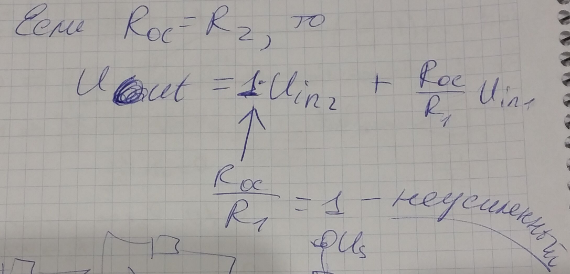 Если Rос = R₂, то
Uout = 1·Uin₂ + Rос/R₁ Uin₁
Rос/R₁ = 1 – неусиленный
U₅